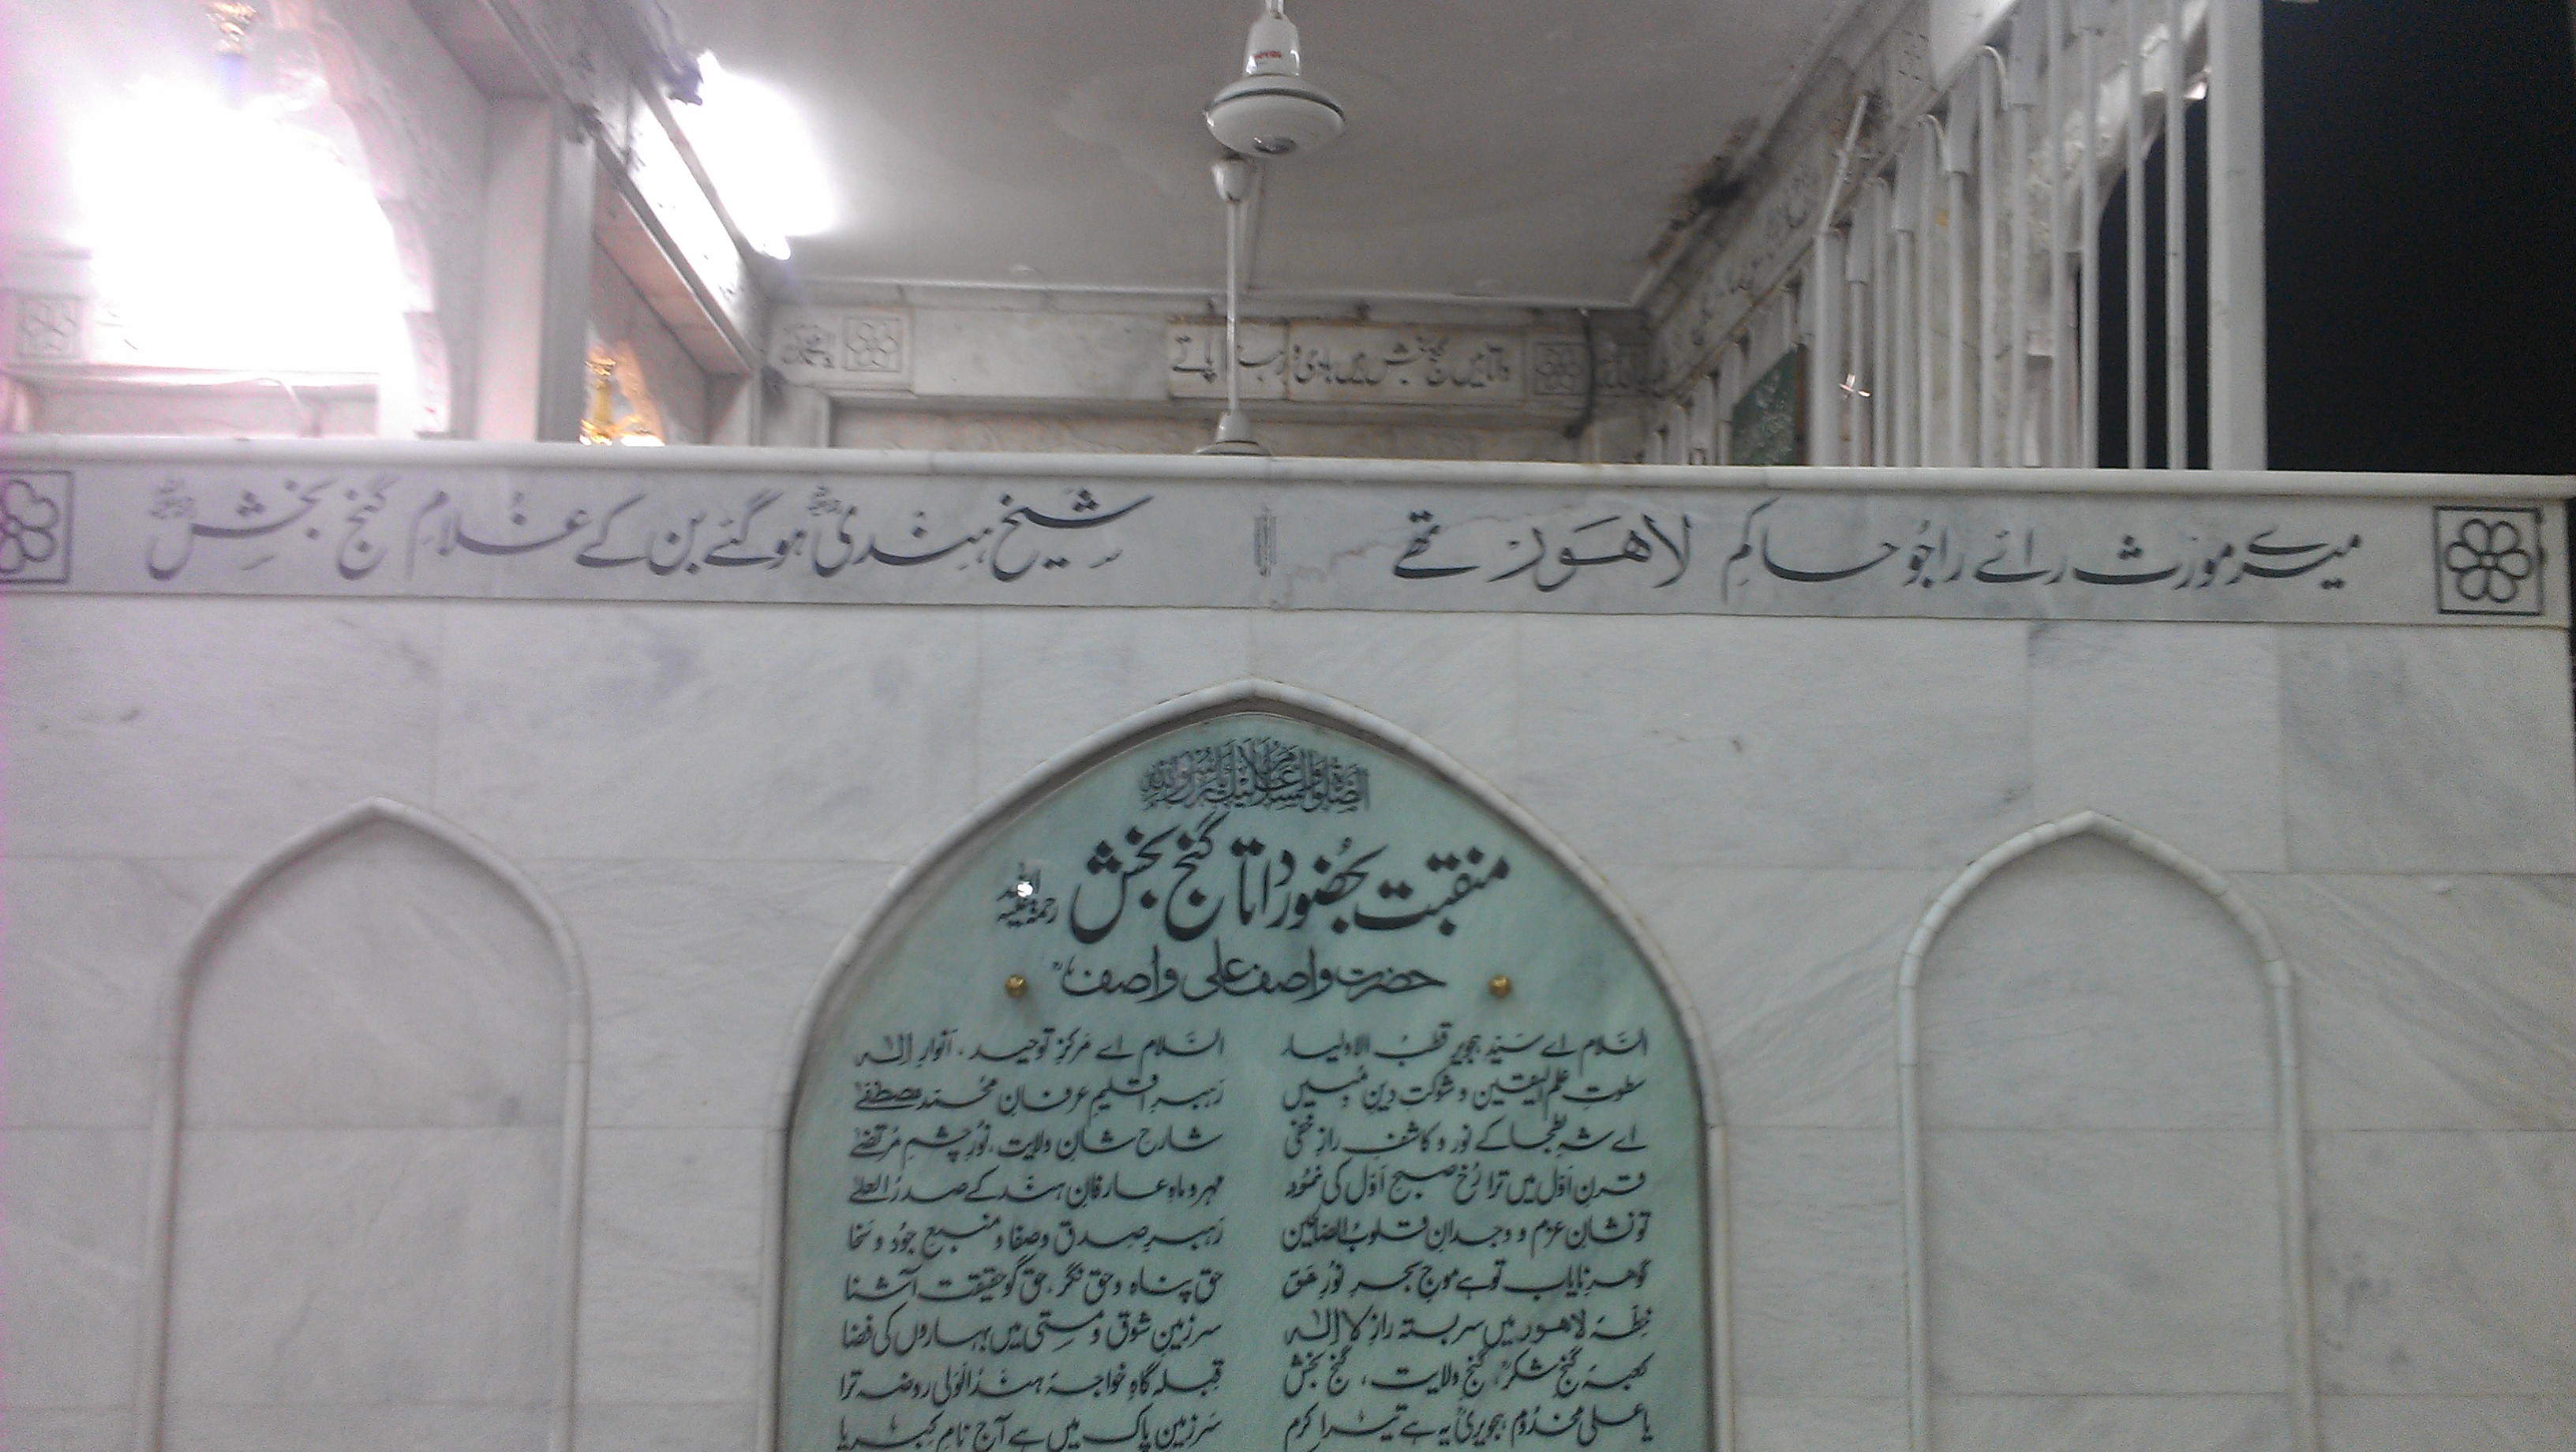 داتا ہیں گنج بخش ہیں ہادی و
میرے مورث رائے راجُو حاکمِ لاھور تھے شیخ ہندیؒ ہو گئے بن کے غلامِ گنج بخشؒ
الصلوٰة والسلام علیک یا رسول اللہ
منقبت بحُضور داتا گنج بخش رحمۃ اللہ علیہ
حضرت واصف علی واصفؒ
السَّلام اے سَیّدِ ہجویر قطبُ الاولیاء السَّلام اے مَرکزِ توحید، اَنوارِ اِلٰہ
سطوتِ علم الیقین و شوکتِ دینِ مُبیں رَہبرِ اقلیمِ عرفانِ مُحَمَّد مصطفےٰ
اے شہِ بطحا کے نور و کاشفِ رازِ خفی شارحِ شانِ ولایت، نُورِ چشمِ مُرتضےٰ
قرنِ اَوّل میں ترا رُخ صبحِ اَوّل کی نمُود مہر و ماہِ عارفانِ ہند کے صدرُ العلےٰ
تو نشانِ عزم و وجدانِ قلوبُ الصالحین رَہبرِ صِدق و صفا و منبعِ جُود و سَخا
گوھرِ نایاب تو ہے موجِ بحرِ نُورِ حَق حق پناہ و حق نگر، حق گو حقیقت آشنا
خِطّۂ لاھور میں سربستہ رازِ لا اِلٰہ سرزمینِ شوق و مستی میں بہاروں کی فضا
کعبۂ گنجِ شکرؒ، گنجِ ولایت، گنج بخش قبلہ گاہِ خواجۂ ہندُ الوَلی روضہ ترا
یا علی مخدُوم ہجویریؒ یہ ہے تیرا کرم سَرزمینِ پاک میں ہے آج نامِ کبریا